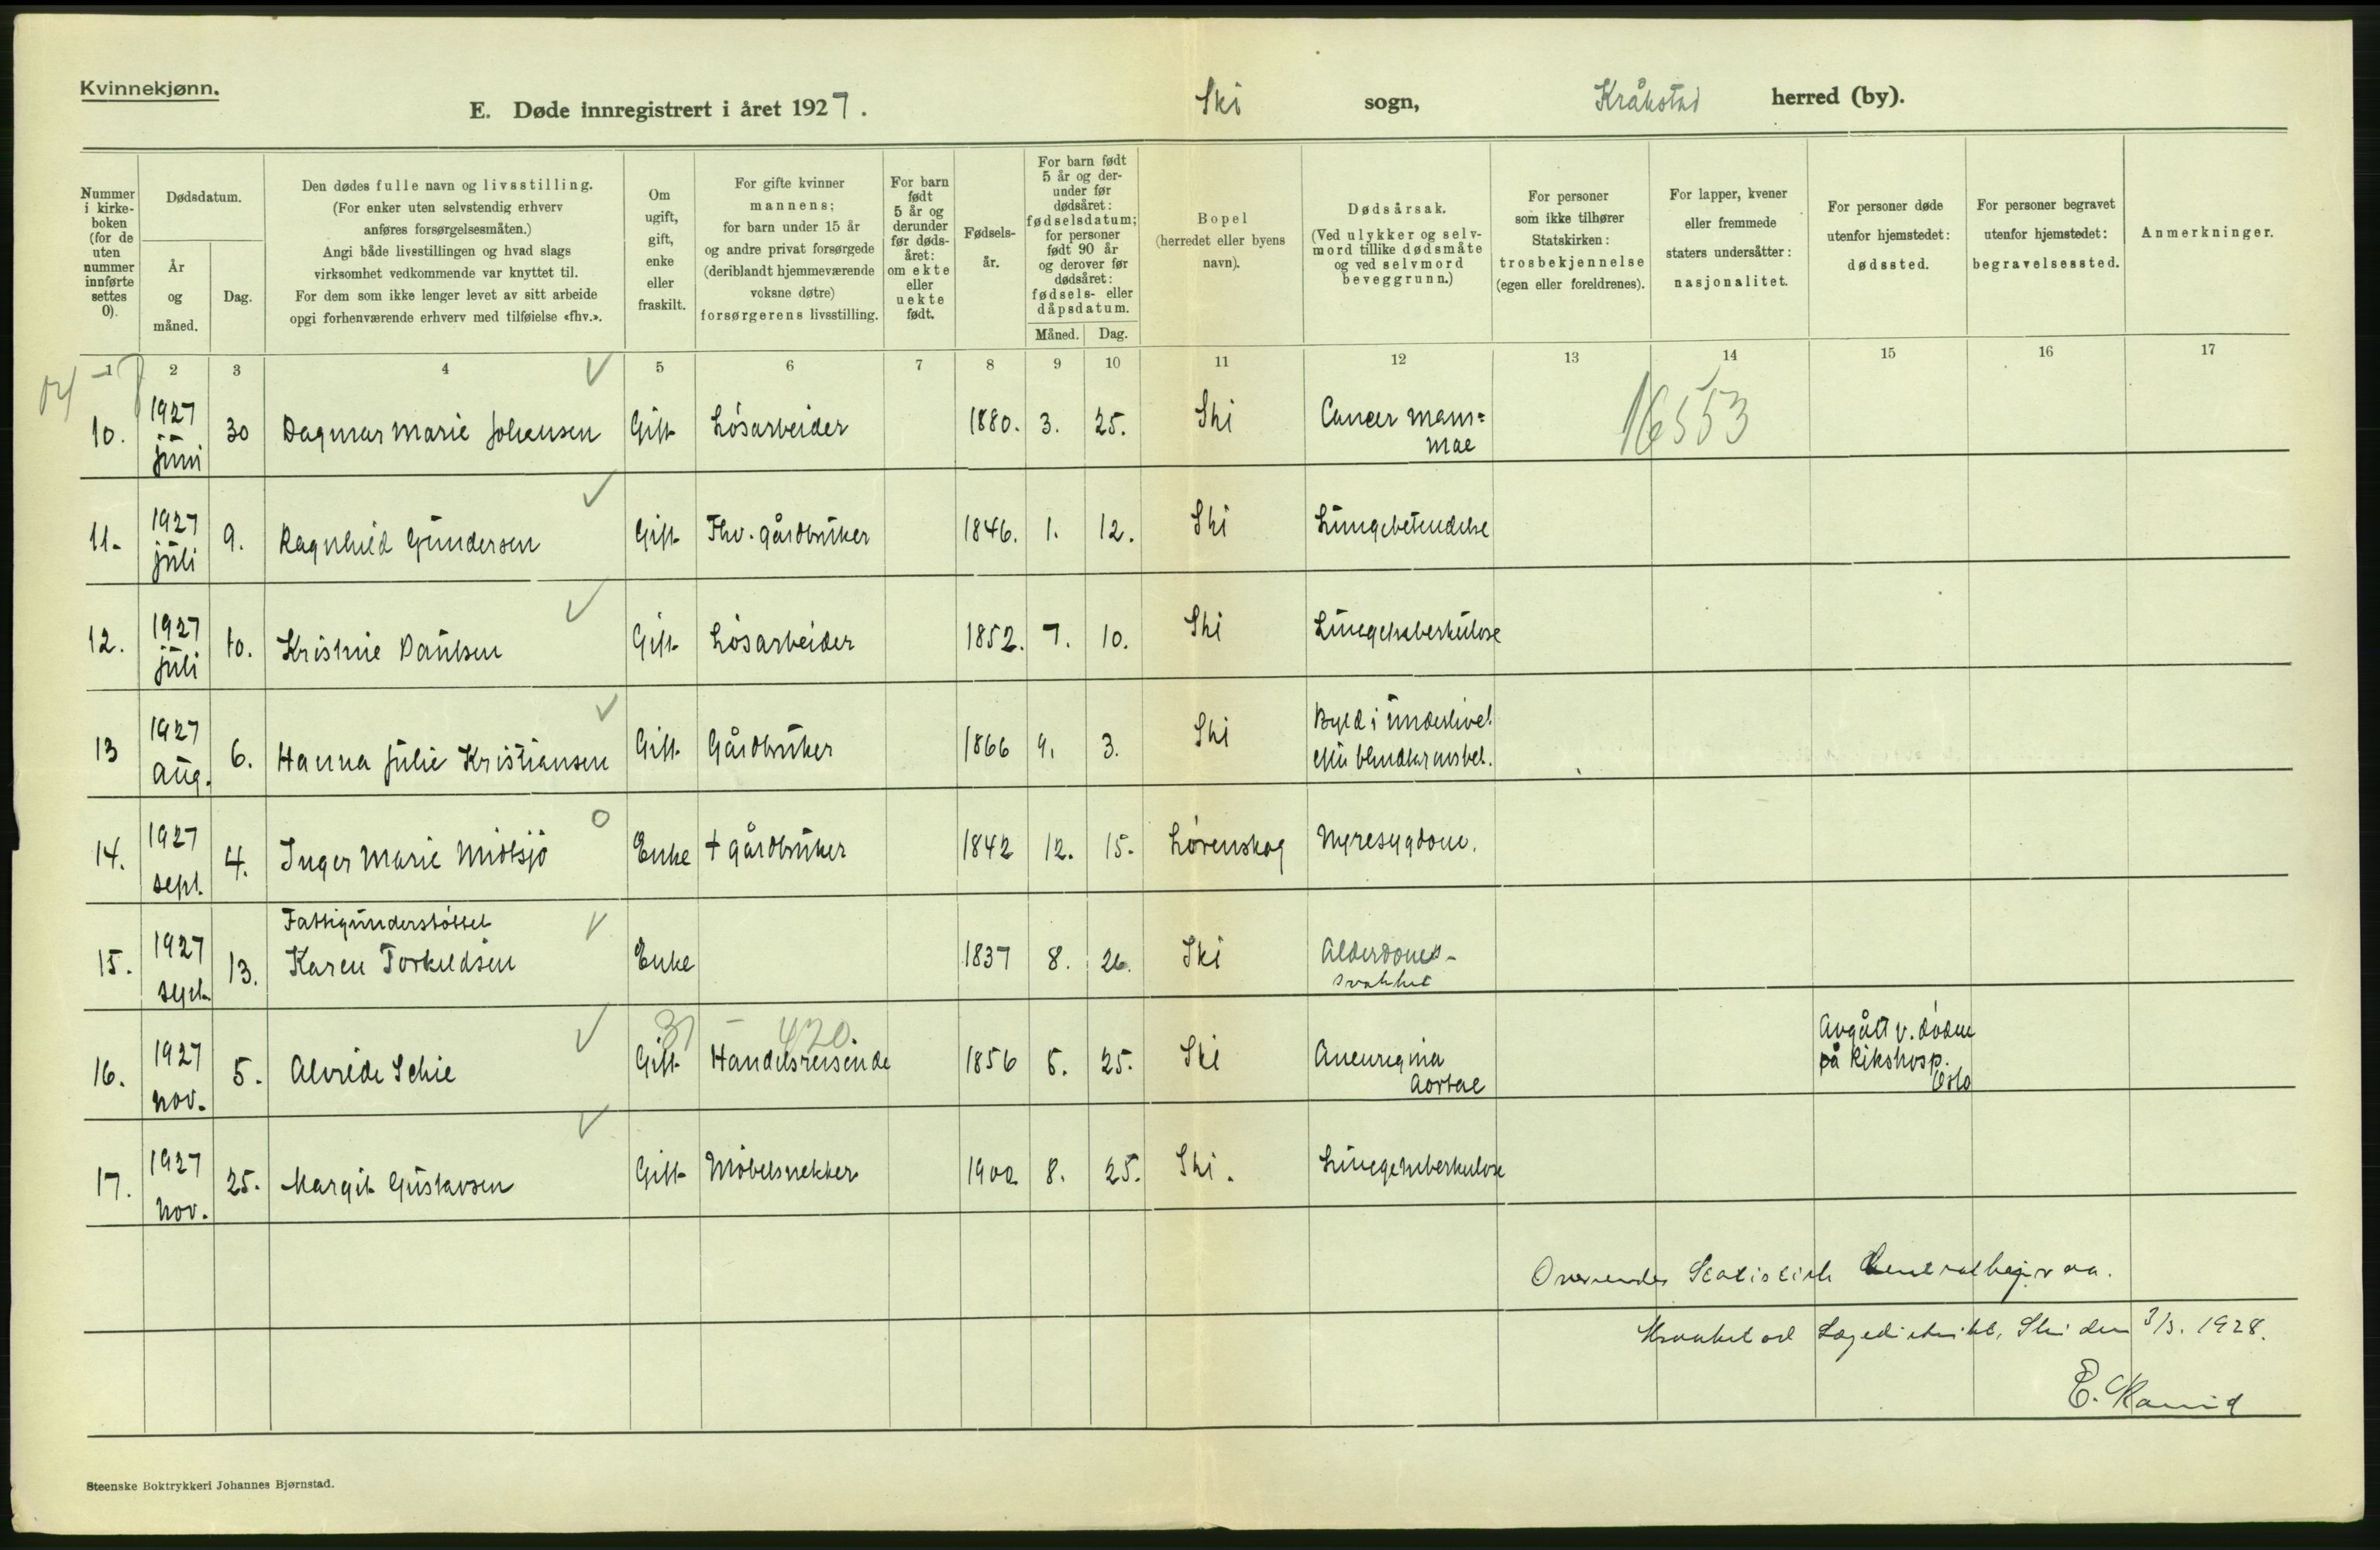 Kvinnekjønn.
E. Døde innregistrert i året 1927.
Ski sogn, Kråkstad herred (by).
Nummer i kirke-boken (for de uten nummer innførte settes 0).
Dødsdatum.
År og måned.
Dag.
Den dødes fulle navn og livsstilling.
(For enker uten selvstendig erhverv
anføres forsørgelsesmåten.)
Angi både livsstillingen og hvad slags
virksomhet vedkommende var knyttet til.
For dem som ikke lenger levet av sitt arbeide
opgi forhenværende erhverv med tilføielse «fhv.».
Om ugift, gift, enke eller fraskilt.
For gifte kvinner
mannens;
for barn under 15 år
og andre privat forsørgede
(deriblandt hjemmeværende
voksne døtre)
forsørgerens livsstilling.
For barn født 5 år og derunder før døds-året: om ekte eller uekte født.
Fødsels-år.
For barn født 5 år og der-under før dødsåret: fødselsdatum; for personer født 90 år og derover før dødsåret: fødsels- eller dåpsdatum.
Måned. Dag.
Bopel
(herredet eller byens
navn).
Dødsårsak.
(Ved ulykker og selv-
mord tillike dødsmåte
og ved selvmord
beveggrunn.)
For personer
som ikke tilhører
Statskirken:
trosbekjennelse
(egen eller foreldrenes).
For lapper, kvener
eller fremmede
staters undersåtter:
nasjonalitet.
For personer døde
utenfor hjemstedet:
dødssted.
For personer begravet
utenfor hjemstedet:
begravelsessted.
Anmerkninger.
1 2 3 4 5 6 7 8 9 10 11 12 13 14 15 16 17
10. 1927 juni 30 Dagmar Marie Johansen Gift Løsarbeider 1880. 3. 25. Ski Cancer mam=
mae
16553
11. 1927 juli 9. Ragnhild Gundersen Gift Fhv. gårdbruker 1846. 1. 12. Ski Lungebetendelse
12. 1927 juli 10. Kristine Paulsen Gift Løsarbeider 1852. 7. 10. Ski Lungetuberkulose
13 1927 aug. 6. Hanna Julie Kristiansen Gift Gårdbruker 1866 9. 3. Ski Byld i underlivet
efter blindtarmsbet.
14. 1927 sept. 4. Inger Marie Midtsjø Enke † gårdbruker 1842 12. 15. Lørenskog Nyresygdom.
Fattigunderstøttet
15. 1927 sept. 13. Karen Torkildsen Enke 1837 8. 26. Ski Alderdoms-
svakhet
37 – 420.
16. 1927 nov. 5. Alvilde Schie Gift Handelsreisende 1856 5. 25. Ski Aneurigma
aortae
Avgått v. døden
på Rikshosp.
Oslo
17. 1927 nov. 25. Margit Gustavsen Gift Møbelsnekker 1900 8. 25. Ski. Lungetuberkulose
Oversendes Statistisk Centralbyraa.
Kraakstad Lægedistrikt, Ski den 3/3. 1928.
E.
Steenske Boktrykkeri Johannes Bjørnstad.